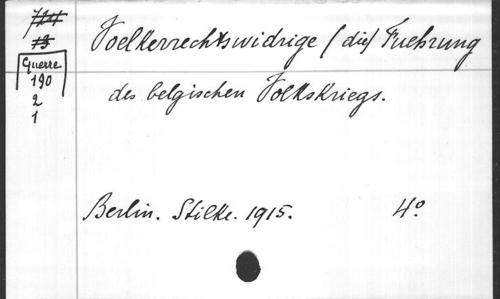 714
13
Guerre
190
2
1
Voelkerrechtswidrige (die) Fuehrung
des belgischen Volkskriegs.
Berlin. Stilke. 1915. 4°